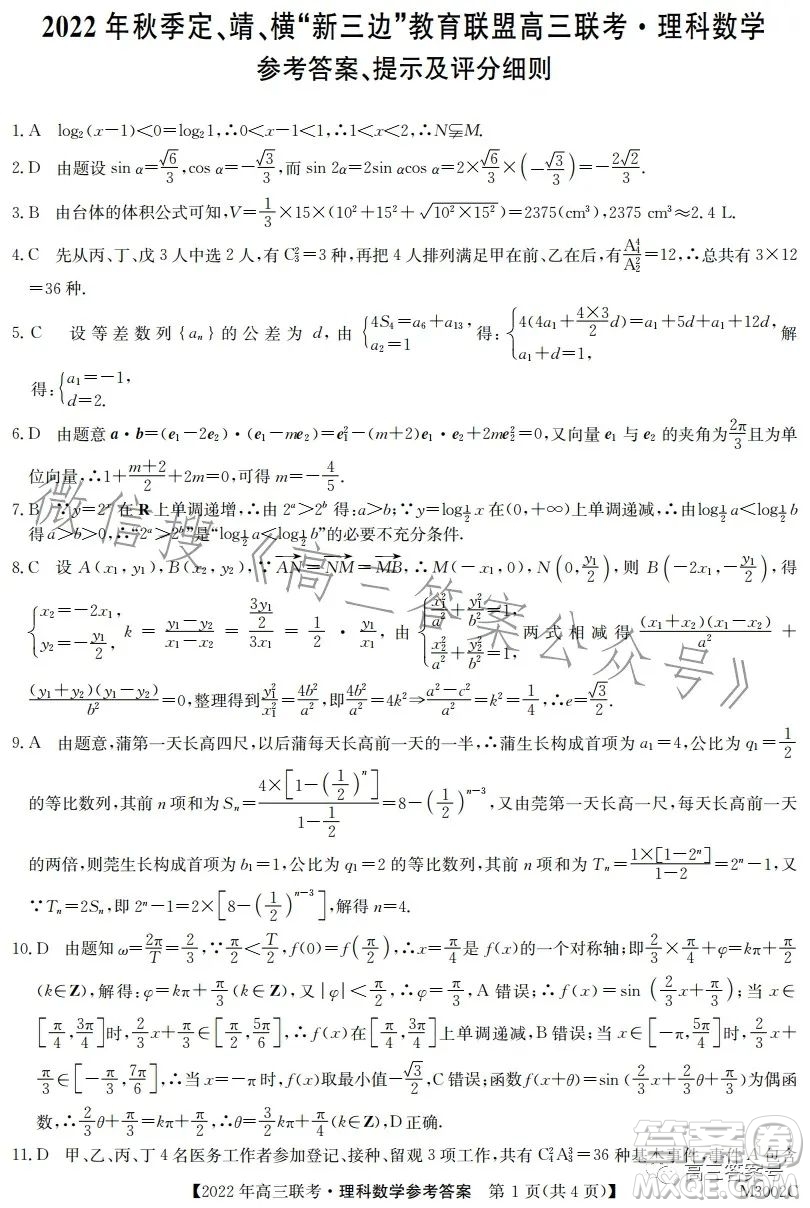 2022 年秋季定、靖、横“新三边”教育联盟高三联考·理科数学
参考答案、提示及评分细则
1. A　log₂(x−1)<0=log₂1,∴0<x−1<1,∴1<x<2,∴N⫋M.
2. D　由题设 sin α=√6/3,cos α=−√3/3,而 sin 2α=2sin αcos α=2×√6/3×(−√3/3)=−2√2/3.
3. B　由台体的体积公式可知,V=1/3×15×(10²+15²+√(10²×15²))=2375(cm³),2375 cm³≈2.4 L.
4. C　先从丙、丁、戊 3 人中选 2 人,有 C₃²=3 种,再把 4 人排列满足甲在前、乙在后,有A₄⁴/A₂²=12,∴总共有 3×12
=36 种.
5. C　设等差数列{aₙ}的公差为 d,由{4S₄=a₆+a₁₃, a₂=1 得:{4(4a₁+(4×3)/2 d)=a₁+5d+a₁+12d, a₁+d=1, 解
得:{a₁=−1, d=2.
6. D　由题意 a·b=(e₁−2e₂)·(e₁−me₂)=e₁²−(m+2)e₁·e₂+2me₂²=0,又向量 e₁ 与 e₂ 的夹角为2π/3且为单
位向量,∴1+(m+2)/2+2m=0,可得 m=−4/5.
7. B　∵y=2ˣ 在 R 上单调递增,∴由 2ᵃ>2ᵇ 得:a>b;∵y=log_{1/2} x 在(0,+∞)上单调递减,∴由log_{1/2} a<log_{1/2} b
得 a>b>0,∴“2ᵃ>2ᵇ”是“log_{1/2} a<log_{1/2} b”的必要不充分条件.
8. C　设 A(x₁,y₁),B(x₂,y₂),∵AN→=NM→=MB→,∴M(−x₁,0),N(0,y₁/2),则 B(−2x₁,−y₁/2),得
{x₂=−2x₁, y₂=−y₁/2, k=(y₁−y₂)/(x₁−x₂)=(3y₁/2)/(3x₁)=1/2·y₁/x₁,由{x₁²/a²+y₁²/b²=1, x₂²/a²+y₂²/b²=1, 两式相减得(x₁+x₂)(x₁−x₂)/a²+
(y₁+y₂)(y₁−y₂)/b²=0,整理得到y₁²/x₁²=4b²/a²,即4b²/a²=4k²⇒(a²−c²)/a²=k²=1/4,∴e=√3/2.
9. A　由题意,蒲第一天长高四尺,以后蒲每天长高前一天的一半,∴蒲生长构成首项为 a₁=4,公比为 q₁=1/2
的等比数列,其前 n 项和为 Sₙ=4×[1−(1/2)ⁿ]/(1−1/2)=8−(1/2)ⁿ⁻³,又由莞第一天长高一尺,每天长高前一天
的两倍,则莞生长构成首项为 b₁=1,公比为 q₁=2 的等比数列,其前 n 项和为 Tₙ=1×[1−2ⁿ]/(1−2)=2ⁿ−1,又
∵Tₙ=2Sₙ,即 2ⁿ−1=2×[8−(1/2)ⁿ⁻³],解得 n=4.
10. D　由题知 ω=2π/T=2/3,∵π/2<T/2,f(0)=f(π/2),∴x=π/4是 f(x)的一个对称轴;即2/3×π/4+φ=kπ+π/2
(k∈Z),解得:φ=kπ+π/3(k∈Z),又|φ|<π/2,∴φ=π/3,A 错误;∴f(x)=sin(2/3 x+π/3);当 x∈
[π/4,3π/4]时,2/3 x+π/3∈[π/2,5π/6],∴f(x)在[π/4,3π/4]上单调递减,B 错误;当 x∈[−π,5π/4]时,2/3 x+
π/3∈[−π/3,7π/6],∴当 x=−π 时,f(x)取最小值−√3/2,C 错误;函数 f(x+θ)=sin(2/3 x+2/3 θ+π/3)为偶函
数,∴2/3 θ+π/3=kπ+π/2,∴θ=3/2 kπ+π/4(k∈Z),D 正确.
11. D　甲、乙、丙、丁 4 名医务工作者参加登记、接种、留观 3 项工作,共有 C₄²A₃³=36 种基本事件,事件 A 包含
【2022 年高三联考·理科数学参考答案　第 1 页(共 4 页)】　M3002C
微信搜《高三答案公众号》
高三答案号